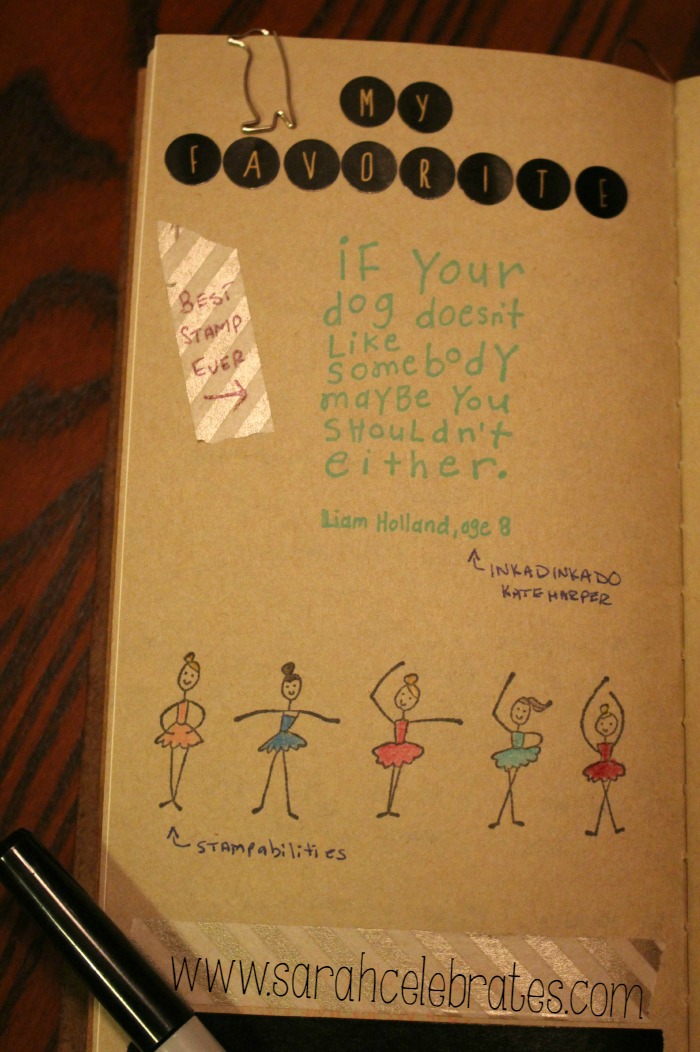 MY
FAVORITE
BEST
STAMP
EVER
iF Your
dog doesn't
Like
somebody
mayBe You
sHouLdn't
either.
Liam Holland, age 8
INKADINKADO
KATE HARPER
STAMPabilities
www.sarahcelebrates.com